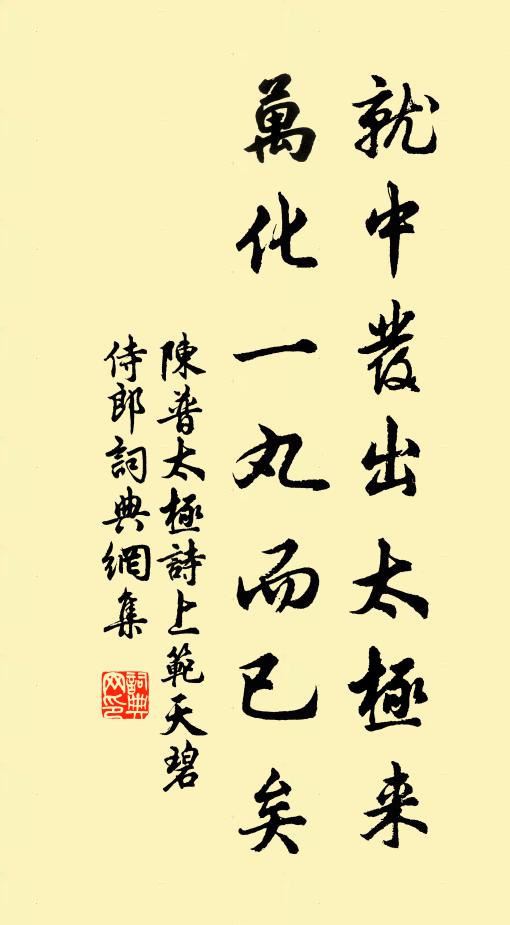 就中發出太極来
萬化一丸而已矣
陳普太極詩上範天碧
侍郎詞典網集
詞典网印